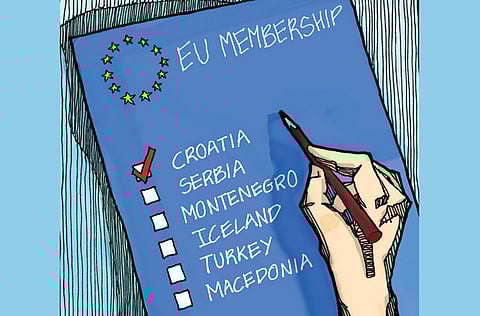 EU MEMBERSHIP
CROATIA
SERBIA
MONTENEGRO
ICELAND
TURKEY
MACEDONIA